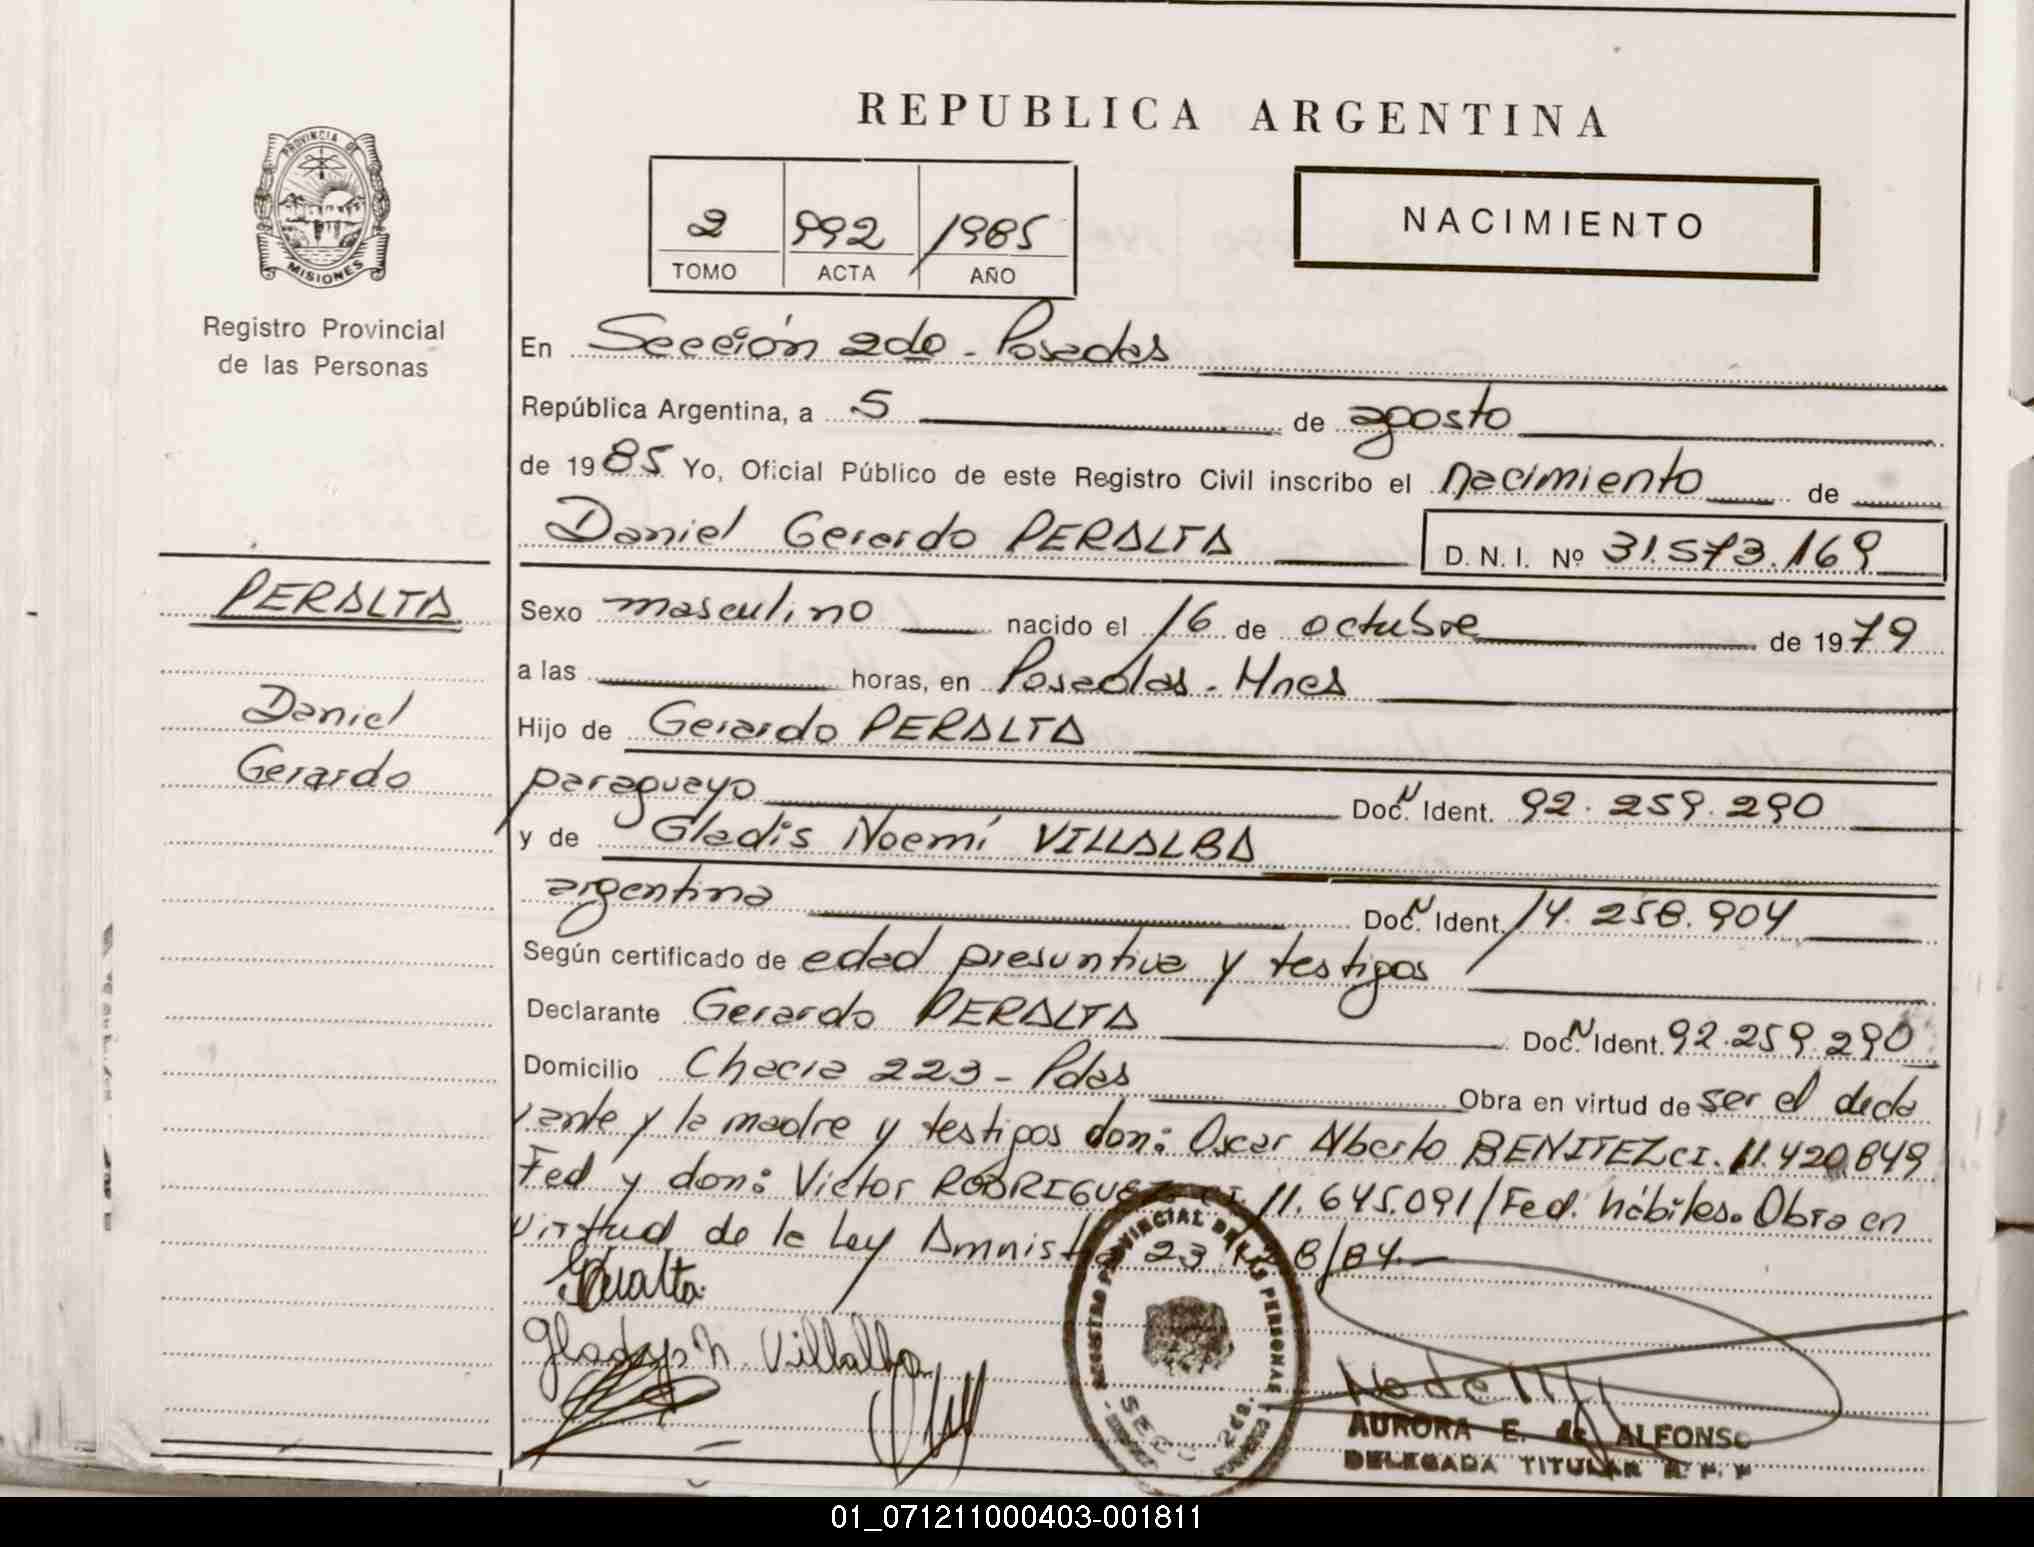 REPUBLICA ARGENTINA
PROVINCIA DE
MISIONES
Registro Provincial
de las Personas
2 992 1985
TOMO ACTA AÑO
NACIMIENTO
En Sección 2da - Posadas
República Argentina, a 5 de agosto
de 1985 Yo, Oficial Público de este Registro Civil inscribo el nacimiento de
Daniel Gerardo PERALTA D. N. I. Nº 31.573.169
PERALTA
Daniel
Gerardo
Sexo masculino nacido el 16 de octubre de 1979
a las horas, en Posadas - Mnes
Hijo de Gerardo PERALTA
paraguayo Doc. N Ident. 92.259.290
y de Gladis Noemí VILLALBA
argentina Doc. N Ident. 14.258.904
Según certificado de edad presuntiva y testigos
Declarante Gerardo PERALTA Doc. N Ident. 92.259.290
Domicilio Chacra 223 - Pdas Obra en virtud de ser el decla
rante y la madre y testigos don: Oscar Alberto BENITEZ CI. 11.420.849
Fed y don: Victor RODRIGUEZ CI. 11.645.091/Fed. hábiles. Obra en
virtud de la Ley Amnistía 23.128/84.
GPeralta.
Gladys N. Villalba
REGISTRO PROVINCIAL DE LAS PERSONAS
SECC 2da.
AURORA E. de ALFONSO
DELEGADA TITULAR R. P. P
01_071211000403-001811